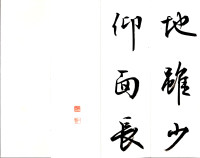 地雖少
仰面長